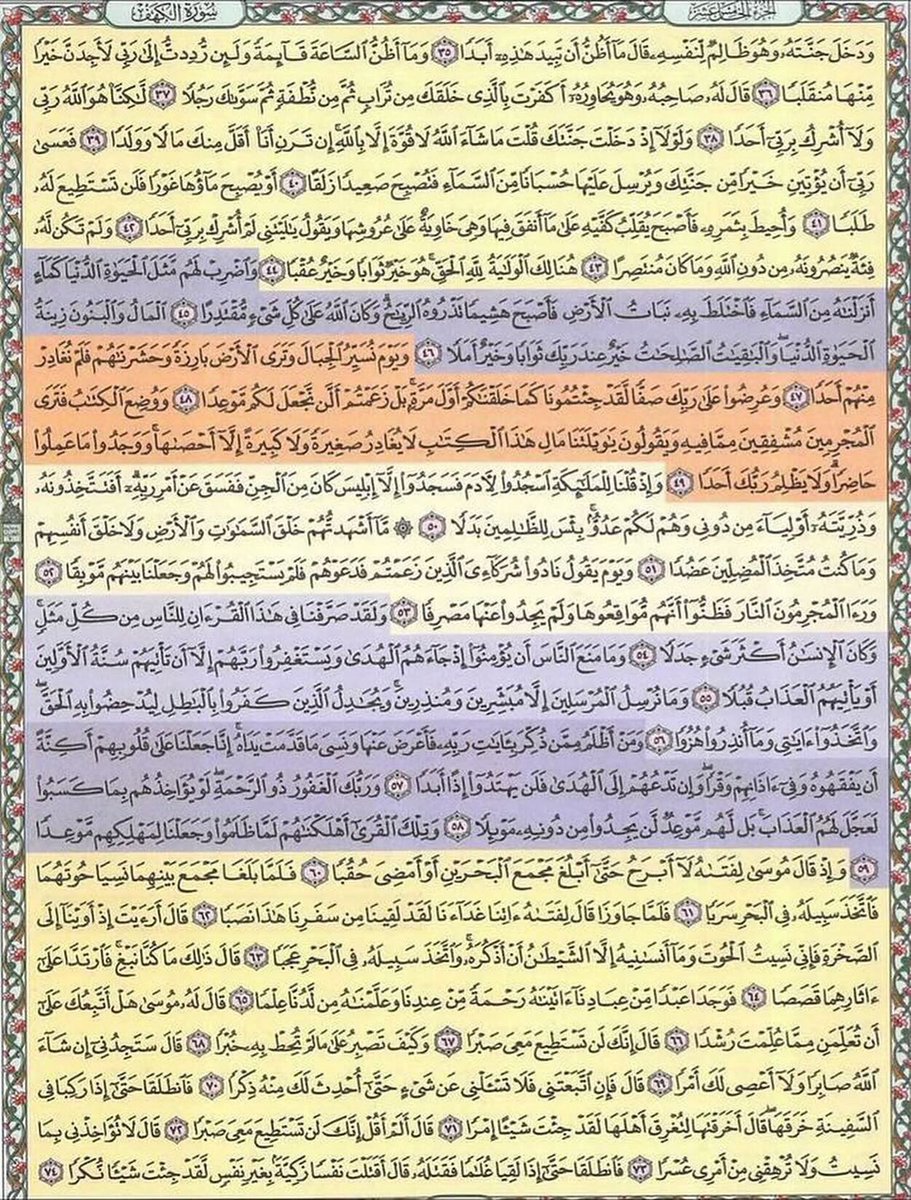 سُورَةُ الكَهْف الجُزءُ الخَامِسَ عَشَرَ
وَدَخَلَ جَنَّتَهُۥ وَهُوَ ظَالِمٌ لِّنَفْسِهِۦ قَالَ مَآ أَظُنُّ أَن تَبِيدَ هَٰذِهِۦٓ أَبَدًا ٣٥ وَمَآ أَظُنُّ ٱلسَّاعَةَ قَآئِمَةً وَلَئِن رُّدِدتُّ إِلَىٰ رَبِّى لَأَجِدَنَّ خَيْرًا
مِّنْهَا مُنقَلَبًا ٣٦ قَالَ لَهُۥ صَاحِبُهُۥ وَهُوَ يُحَاوِرُهُۥٓ أَكَفَرْتَ بِٱلَّذِى خَلَقَكَ مِن تُرَابٍ ثُمَّ مِن نُّطْفَةٍ ثُمَّ سَوَّىٰكَ رَجُلًا ٣٧ لَّٰكِنَّا۠ هُوَ ٱللَّهُ رَبِّى
وَلَآ أُشْرِكُ بِرَبِّىٓ أَحَدًا ٣٨ وَلَوْلَآ إِذْ دَخَلْتَ جَنَّتَكَ قُلْتَ مَا شَآءَ ٱللَّهُ لَا قُوَّةَ إِلَّا بِٱللَّهِ ۚ إِن تَرَنِ أَنَا۠ أَقَلَّ مِنكَ مَالًا وَوَلَدًا ٣٩ فَعَسَىٰ
رَبِّىٓ أَن يُؤْتِيَنِ خَيْرًا مِّن جَنَّتِكَ وَيُرْسِلَ عَلَيْهَا حُسْبَانًا مِّنَ ٱلسَّمَآءِ فَتُصْبِحَ صَعِيدًا زَلَقًا ٤٠ أَوْ يُصْبِحَ مَآؤُهَا غَوْرًا فَلَن تَسْتَطِيعَ لَهُۥ
طَلَبًا ٤١ وَأُحِيطَ بِثَمَرِهِۦ فَأَصْبَحَ يُقَلِّبُ كَفَّيْهِ عَلَىٰ مَآ أَنفَقَ فِيهَا وَهِىَ خَاوِيَةٌ عَلَىٰ عُرُوشِهَا وَيَقُولُ يَٰلَيْتَنِى لَمْ أُشْرِكْ بِرَبِّىٓ أَحَدًا ٤٢ وَلَمْ تَكُن لَّهُۥ
فِئَةٌ يَنصُرُونَهُۥ مِن دُونِ ٱللَّهِ وَمَا كَانَ مُنتَصِرًا ٤٣ هُنَالِكَ ٱلْوَلَٰيَةُ لِلَّهِ ٱلْحَقِّ ۚ هُوَ خَيْرٌ ثَوَابًا وَخَيْرٌ عُقْبًا ٤٤ وَٱضْرِبْ لَهُم مَّثَلَ ٱلْحَيَوٰةِ ٱلدُّنْيَا كَمَآءٍ
أَنزَلْنَٰهُ مِنَ ٱلسَّمَآءِ فَٱخْتَلَطَ بِهِۦ نَبَاتُ ٱلْأَرْضِ فَأَصْبَحَ هَشِيمًا تَذْرُوهُ ٱلرِّيَٰحُ ۗ وَكَانَ ٱللَّهُ عَلَىٰ كُلِّ شَىْءٍ مُّقْتَدِرًا ٤٥ ٱلْمَالُ وَٱلْبَنُونَ زِينَةُ
ٱلْحَيَوٰةِ ٱلدُّنْيَا ۖ وَٱلْبَٰقِيَٰتُ ٱلصَّٰلِحَٰتُ خَيْرٌ عِندَ رَبِّكَ ثَوَابًا وَخَيْرٌ أَمَلًا ٤٦ وَيَوْمَ نُسَيِّرُ ٱلْجِبَالَ وَتَرَى ٱلْأَرْضَ بَارِزَةً وَحَشَرْنَٰهُمْ فَلَمْ نُغَادِرْ
مِنْهُمْ أَحَدًا ٤٧ وَعُرِضُوا۟ عَلَىٰ رَبِّكَ صَفًّا لَّقَدْ جِئْتُمُونَا كَمَا خَلَقْنَٰكُمْ أَوَّلَ مَرَّةٍۭ ۚ بَلْ زَعَمْتُمْ أَلَّن نَّجْعَلَ لَكُم مَّوْعِدًا ٤٨ وَوُضِعَ ٱلْكِتَٰبُ فَتَرَى
ٱلْمُجْرِمِينَ مُشْفِقِينَ مِمَّا فِيهِ وَيَقُولُونَ يَٰوَيْلَتَنَا مَالِ هَٰذَا ٱلْكِتَٰبِ لَا يُغَادِرُ صَغِيرَةً وَلَا كَبِيرَةً إِلَّآ أَحْصَىٰهَا ۚ وَوَجَدُوا۟ مَا عَمِلُوا۟
حَاضِرًا ۗ وَلَا يَظْلِمُ رَبُّكَ أَحَدًا ٤٩ وَإِذْ قُلْنَا لِلْمَلَٰٓئِكَةِ ٱسْجُدُوا۟ لِءَادَمَ فَسَجَدُوٓا۟ إِلَّآ إِبْلِيسَ كَانَ مِنَ ٱلْجِنِّ فَفَسَقَ عَنْ أَمْرِ رَبِّهِۦٓ ۗ أَفَتَتَّخِذُونَهُۥ
وَذُرِّيَّتَهُۥٓ أَوْلِيَآءَ مِن دُونِى وَهُمْ لَكُمْ عَدُوٌّۢ ۚ بِئْسَ لِلظَّٰلِمِينَ بَدَلًا ٥٠ ۞ مَّآ أَشْهَدتُّهُمْ خَلْقَ ٱلسَّمَٰوَٰتِ وَٱلْأَرْضِ وَلَا خَلْقَ أَنفُسِهِمْ
وَمَا كُنتُ مُتَّخِذَ ٱلْمُضِلِّينَ عَضُدًا ٥١ وَيَوْمَ يَقُولُ نَادُوا۟ شُرَكَآءِىَ ٱلَّذِينَ زَعَمْتُمْ فَدَعَوْهُمْ فَلَمْ يَسْتَجِيبُوا۟ لَهُمْ وَجَعَلْنَا بَيْنَهُم مَّوْبِقًا ٥٢
وَرَءَا ٱلْمُجْرِمُونَ ٱلنَّارَ فَظَنُّوٓا۟ أَنَّهُم مُّوَاقِعُوهَا وَلَمْ يَجِدُوا۟ عَنْهَا مَصْرِفًا ٥٣ وَلَقَدْ صَرَّفْنَا فِى هَٰذَا ٱلْقُرْءَانِ لِلنَّاسِ مِن كُلِّ مَثَلٍ ۚ
وَكَانَ ٱلْإِنسَٰنُ أَكْثَرَ شَىْءٍ جَدَلًا ٥٤ وَمَا مَنَعَ ٱلنَّاسَ أَن يُؤْمِنُوٓا۟ إِذْ جَآءَهُمُ ٱلْهُدَىٰ وَيَسْتَغْفِرُوا۟ رَبَّهُمْ إِلَّآ أَن تَأْتِيَهُمْ سُنَّةُ ٱلْأَوَّلِينَ
أَوْ يَأْتِيَهُمُ ٱلْعَذَابُ قُبُلًا ٥٥ وَمَا نُرْسِلُ ٱلْمُرْسَلِينَ إِلَّا مُبَشِّرِينَ وَمُنذِرِينَ ۚ وَيُجَٰدِلُ ٱلَّذِينَ كَفَرُوا۟ بِٱلْبَٰطِلِ لِيُدْحِضُوا۟ بِهِ ٱلْحَقَّ ۖ
وَٱتَّخَذُوٓا۟ ءَايَٰتِى وَمَآ أُنذِرُوا۟ هُزُوًا ٥٦ وَمَنْ أَظْلَمُ مِمَّن ذُكِّرَ بِـَٔايَٰتِ رَبِّهِۦ فَأَعْرَضَ عَنْهَا وَنَسِىَ مَا قَدَّمَتْ يَدَاهُ ۚ إِنَّا جَعَلْنَا عَلَىٰ قُلُوبِهِمْ أَكِنَّةً
أَن يَفْقَهُوهُ وَفِىٓ ءَاذَانِهِمْ وَقْرًا ۖ وَإِن تَدْعُهُمْ إِلَى ٱلْهُدَىٰ فَلَن يَهْتَدُوٓا۟ إِذًا أَبَدًا ٥٧ وَرَبُّكَ ٱلْغَفُورُ ذُو ٱلرَّحْمَةِ ۖ لَوْ يُؤَاخِذُهُم بِمَا كَسَبُوا۟
لَعَجَّلَ لَهُمُ ٱلْعَذَابَ ۚ بَل لَّهُم مَّوْعِدٌ لَّن يَجِدُوا۟ مِن دُونِهِۦ مَوْئِلًا ٥٨ وَتِلْكَ ٱلْقُرَىٰٓ أَهْلَكْنَٰهُمْ لَمَّا ظَلَمُوا۟ وَجَعَلْنَا لِمَهْلِكِهِم مَّوْعِدًا
٥٩ وَإِذْ قَالَ مُوسَىٰ لِفَتَىٰهُ لَآ أَبْرَحُ حَتَّىٰٓ أَبْلُغَ مَجْمَعَ ٱلْبَحْرَيْنِ أَوْ أَمْضِىَ حُقُبًا ٦٠ فَلَمَّا بَلَغَا مَجْمَعَ بَيْنِهِمَا نَسِيَا حُوتَهُمَا
فَٱتَّخَذَ سَبِيلَهُۥ فِى ٱلْبَحْرِ سَرَبًا ٦١ فَلَمَّا جَاوَزَا قَالَ لِفَتَىٰهُ ءَاتِنَا غَدَآءَنَا لَقَدْ لَقِينَا مِن سَفَرِنَا هَٰذَا نَصَبًا ٦٢ قَالَ أَرَءَيْتَ إِذْ أَوَيْنَآ إِلَى
ٱلصَّخْرَةِ فَإِنِّى نَسِيتُ ٱلْحُوتَ وَمَآ أَنسَىٰنِيهُ إِلَّا ٱلشَّيْطَٰنُ أَنْ أَذْكُرَهُۥ ۚ وَٱتَّخَذَ سَبِيلَهُۥ فِى ٱلْبَحْرِ عَجَبًا ٦٣ قَالَ ذَٰلِكَ مَا كُنَّا نَبْغِ ۚ فَٱرْتَدَّا عَلَىٰٓ
ءَاثَارِهِمَا قَصَصًا ٦٤ فَوَجَدَا عَبْدًا مِّنْ عِبَادِنَآ ءَاتَيْنَٰهُ رَحْمَةً مِّنْ عِندِنَا وَعَلَّمْنَٰهُ مِن لَّدُنَّا عِلْمًا ٦٥ قَالَ لَهُۥ مُوسَىٰ هَلْ أَتَّبِعُكَ عَلَىٰٓ
أَن تُعَلِّمَنِ مِمَّا عُلِّمْتَ رُشْدًا ٦٦ قَالَ إِنَّكَ لَن تَسْتَطِيعَ مَعِىَ صَبْرًا ٦٧ وَكَيْفَ تَصْبِرُ عَلَىٰ مَا لَمْ تُحِطْ بِهِۦ خُبْرًا ٦٨ قَالَ سَتَجِدُنِىٓ إِن شَآءَ
ٱللَّهُ صَابِرًا وَلَآ أَعْصِى لَكَ أَمْرًا ٦٩ قَالَ فَإِنِ ٱتَّبَعْتَنِى فَلَا تَسْـَٔلْنِى عَن شَىْءٍ حَتَّىٰٓ أُحْدِثَ لَكَ مِنْهُ ذِكْرًا ٧٠ فَٱنطَلَقَا حَتَّىٰٓ إِذَا رَكِبَا فِى
ٱلسَّفِينَةِ خَرَقَهَا ۖ قَالَ أَخَرَقْتَهَا لِتُغْرِقَ أَهْلَهَا لَقَدْ جِئْتَ شَيْـًٔا إِمْرًا ٧١ قَالَ أَلَمْ أَقُلْ إِنَّكَ لَن تَسْتَطِيعَ مَعِىَ صَبْرًا ٧٢ قَالَ لَا تُؤَاخِذْنِى بِمَا
نَسِيتُ وَلَا تُرْهِقْنِى مِنْ أَمْرِى عُسْرًا ٧٣ فَٱنطَلَقَا حَتَّىٰٓ إِذَا لَقِيَا غُلَٰمًا فَقَتَلَهُۥ قَالَ أَقَتَلْتَ نَفْسًا زَكِيَّةًۢ بِغَيْرِ نَفْسٍ لَّقَدْ جِئْتَ شَيْـًٔا نُّكْرًا ٧٤